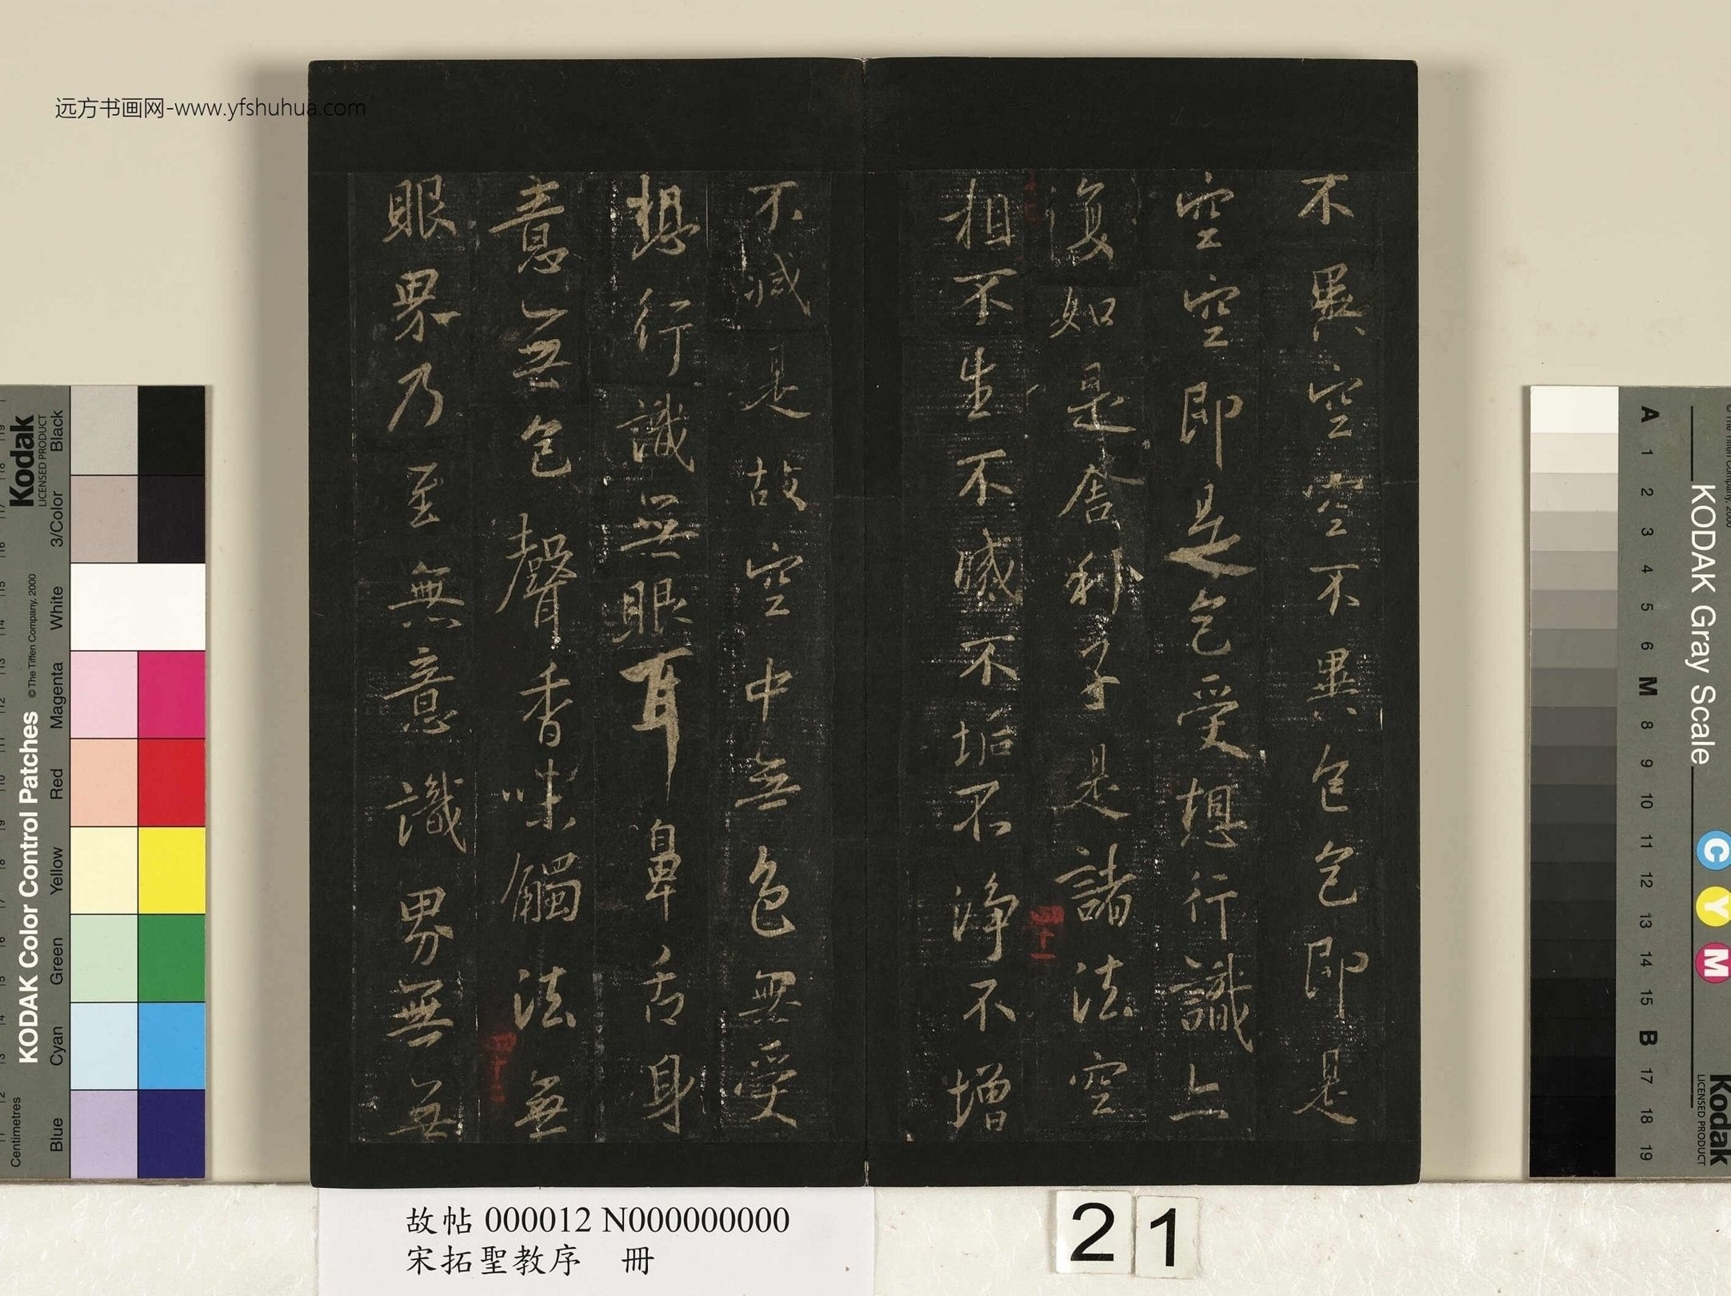 远方书画网-www.yfshuhua.com
不異空空不異色色即是
空空即是色受想行識亦
復如是舍利子是諸法空
相不生不滅不垢不淨不增
四十一
不減是故空中無色無受
想行識無眼耳鼻舌身
意無色聲香味觸法無
四十二
眼界乃至無意識界無無
故帖 000012 N000000000
宋拓聖教序 冊
21
Kodak
LICENSED PRODUCT
KODAK Color Control Patches
© The Tiffen Company, 2000
Centimetres
Blue
Cyan
Green
Yellow
Red
Magenta
White
3/Color
Black
KODAK Gray Scale
A 1 2 3 4 5 6 M 8 9 10 11 12 13 14 15 B 17 18 19
C
Y
M
Kodak
LICENSED PRODUCT